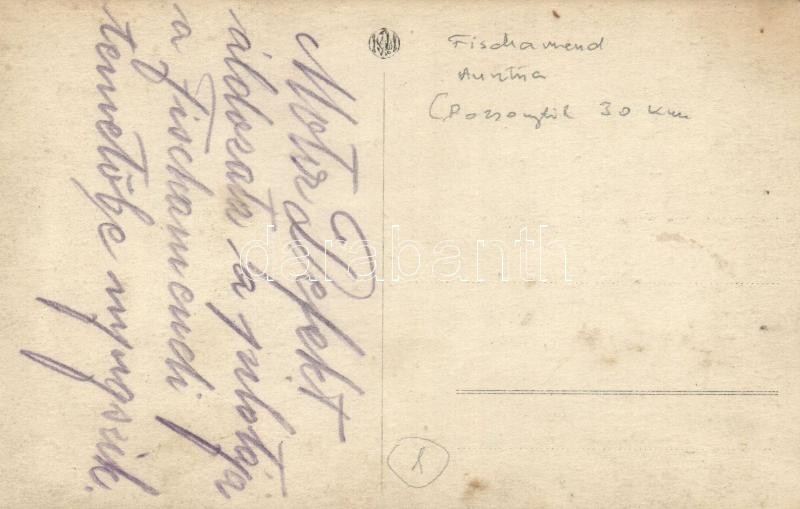 Motor defekt
áldozata a pilotja
a fischamendi
temetőbe nyugszik.
Fischamend
Austria
(Pozsonytól 30 km
1
darabanth